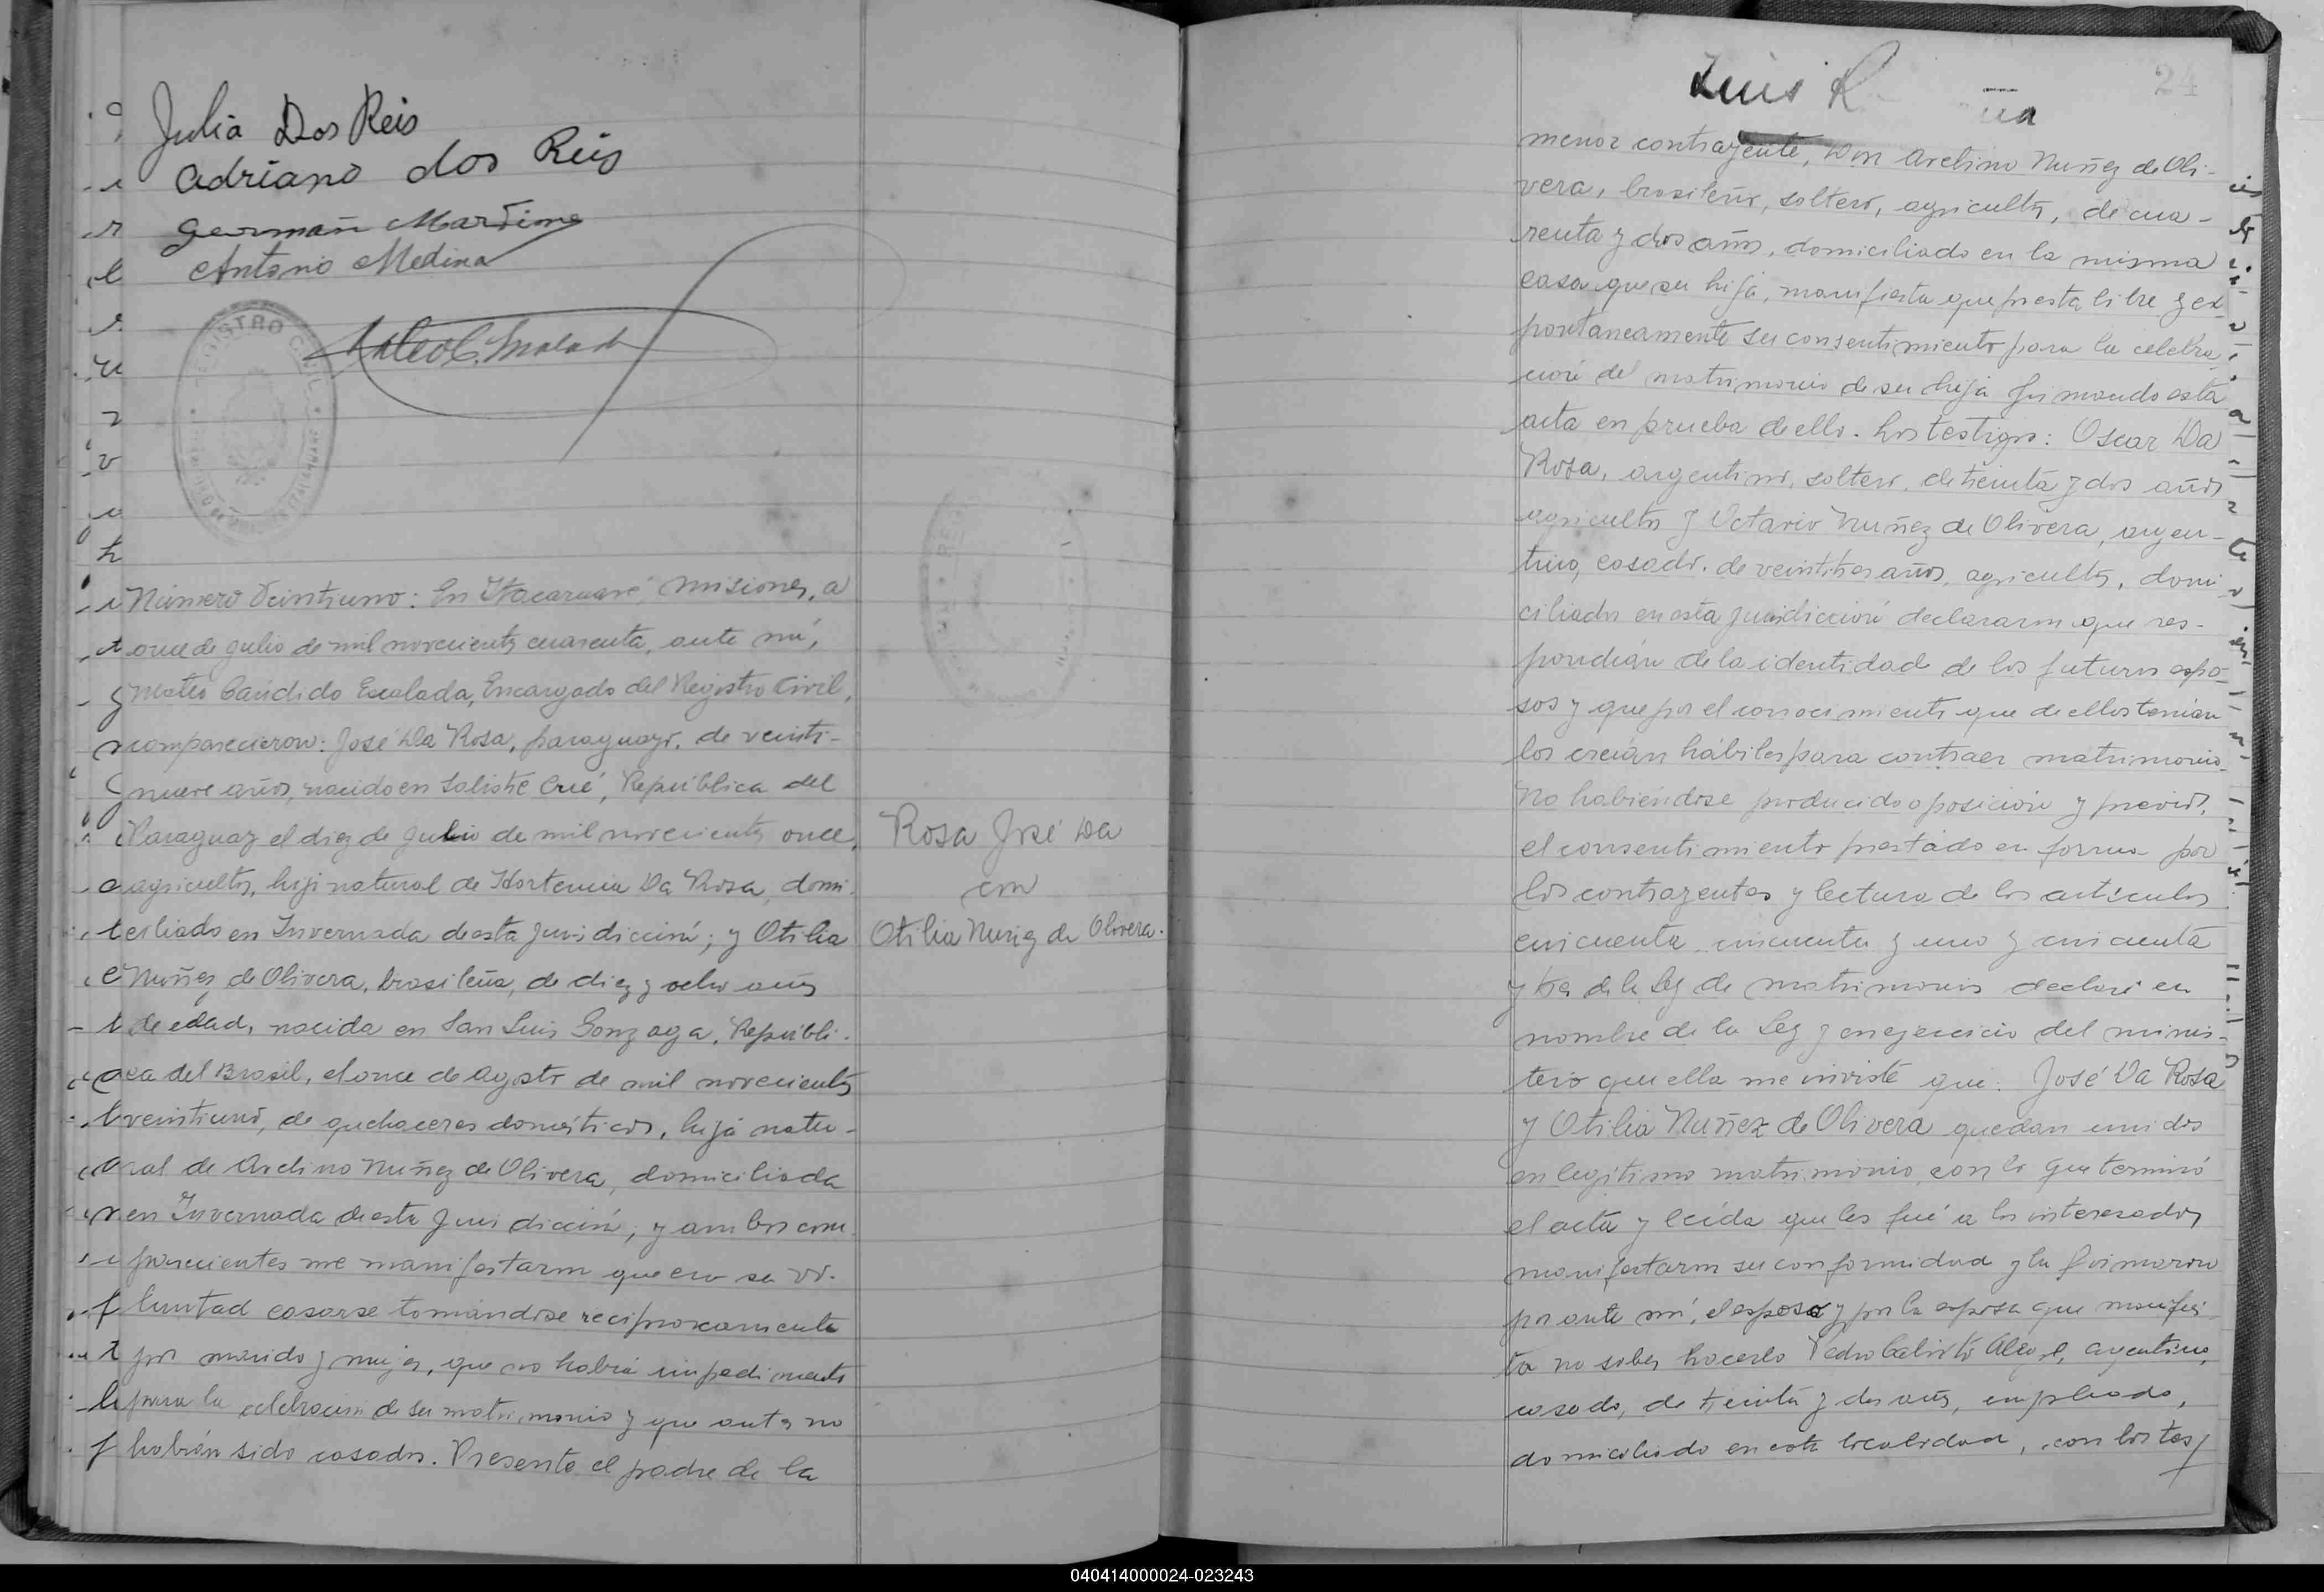 Julia Dos Reis
Adriano dos Reis
German Mardine
Antonio Medina
REGISTRO CIVIL
Número Veintiuno: En Itacaruaré, Misiones, a
once de Julio de mil novecientos cuarenta, ante mí,
Mateo Cándido Escalada, Encargado del Registro Civil,
comparecieron: José Da Rosa, paraguayo, de veinti-
nueve años, nacido en Cué, República del
Paraguay el diez de Julio de mil novecientos once,
agricultor, hijo natural de Hortencia Da Rosa, domi-
ciliado en Invernada de esta Jurisdicción; y Otilia
Nuñez de Olivera, brasileña, de diez y ocho años
de edad, nacida en San Luis Gonzaga, Repúbli-
ca del Brasil, el once de Agosto de mil novecientos
veintiuno, de quehaceres domésticos, hija natu-
ral de Avelino Nuñez de Olivera, domiciliada
en Invernada de esta Jurisdicción; y ambos com
parecientes me manifestaron que era su vo-
luntad casarse tomándose reciprocamente
por marido y mujer, que no habia impedimento
para la celebracion de su matrimonio y que antes no
habián sido casados. Presente el padre de la
Rosa José Da
con
Otilia Nuñez de Olivera.
24
Luis R
menor contrayente, Don Avelino Nuñez de Oli-
vera, brasileño, soltero, agricultor, de cua-
renta y dos años, domiciliado en la misma
casa que su hija, manifiesta que presta libre y es
pontaneamente su consentimiento para la celebra
ción del matrimonio de su hija firmando esta
acta en prueba de ello. Los testigos: Oscar Da
Rosa, argentino, soltero, de treinta y dos años
agricultor y Octavio Nuñez de Olivera, argen-
tino, casado, de veintitres años, agricultor, domi
ciliados en esta Jurisdicción declararon que res-
pondián de la identidad de los futuros espo-
sos y que por el conocimiento que de ellos tenian
los creián hábiles para contraer matrimonio.
No habiéndose producido oposición y previo,
el consentimiento prestado en forma por
los contrayentes y lectura de los artículos
cincuenta, cincuenta y uno y cincuenta
y tres de la Ley de matrimonio declaré en
nombre de la Ley y en ejercicio del minis-
terio que ella me inviste que: José Da Rosa
y Otilia Nuñez de Olivera quedan unidos
en legítimo matrimonio, con lo que terminó
el acta y leída que les fué a los interesados
manifestaron su conformidad y la firmaron
por ante mí, el esposo y por la esposa que manifies
ta no saber hacerlo Pedro Calisto, argentino,
casado, de treinta y dos años, empleado,
domiciliado en esta localidad, con los tes
040414000024-023243